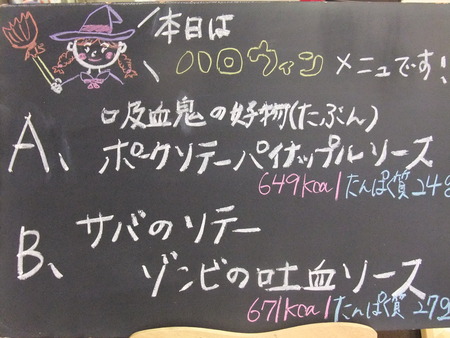 本日は
ハロウィン メニューです!
A、吸血鬼の好物(たぶん)
ポークソテーパイナップルソース
649kcal たんぱく質24g
B、サバのソテー
ゾンビの吐血ソース
671kcal たんぱく質27g